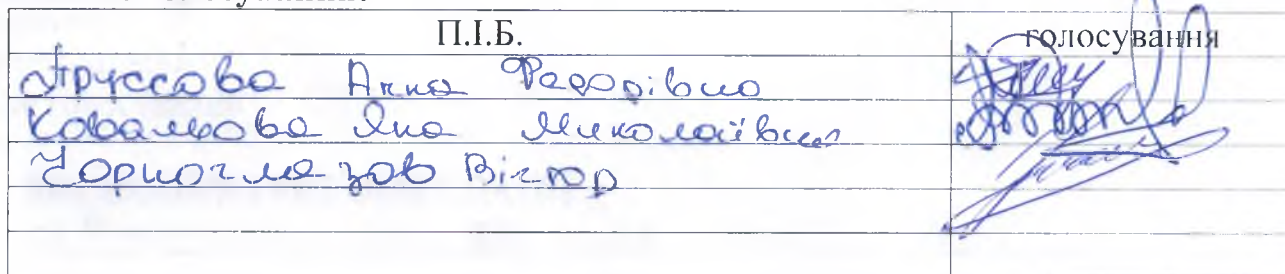 П.І.Б. голосування
Пруссова Анна Федорівна
Ковальова Яна Миколаївна
Чорноглазов Віктор